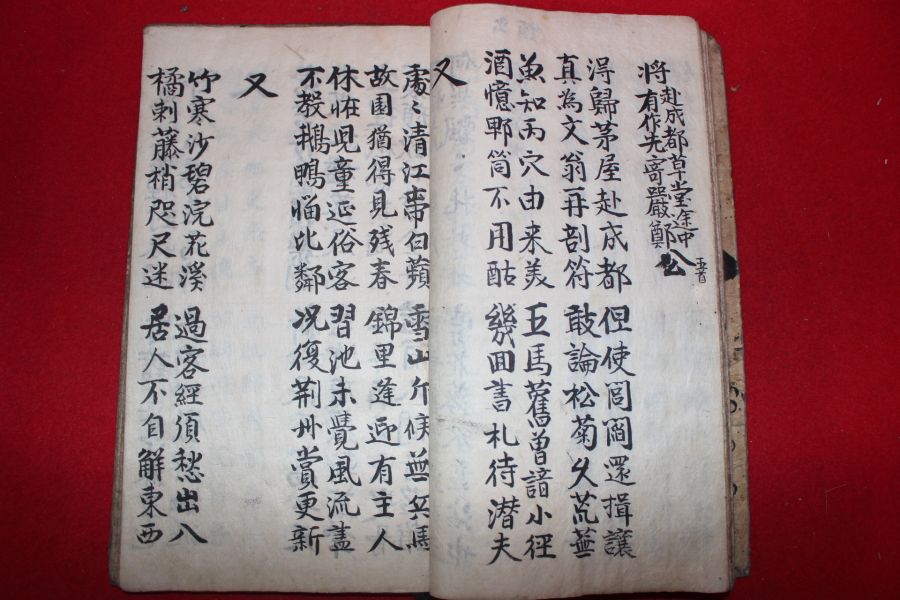 將赴成都草堂途中
有作先寄嚴鄭公 五首
淂歸茅屋赴成都 但使閭閻還揖讓
真為文翁再剖符 敢論松菊久荒蕪
魚知丙穴由来美 五馬舊曾諳小徑
酒憶郫筒不用酤 幾囬書札待潜夫
又
處〻清江帶白蘋 雪山斥候無兵馬
故园猶得見残春 錦里逢迎有主人
休怪兒童延俗客 習池未覺風流盖
不教鵝鴨惱比鄰 况復荆州賞更新
又
竹寒沙碧浣花溪 過客經須愁出入
橘刺藤梢咫尺迷 居人不自解東西